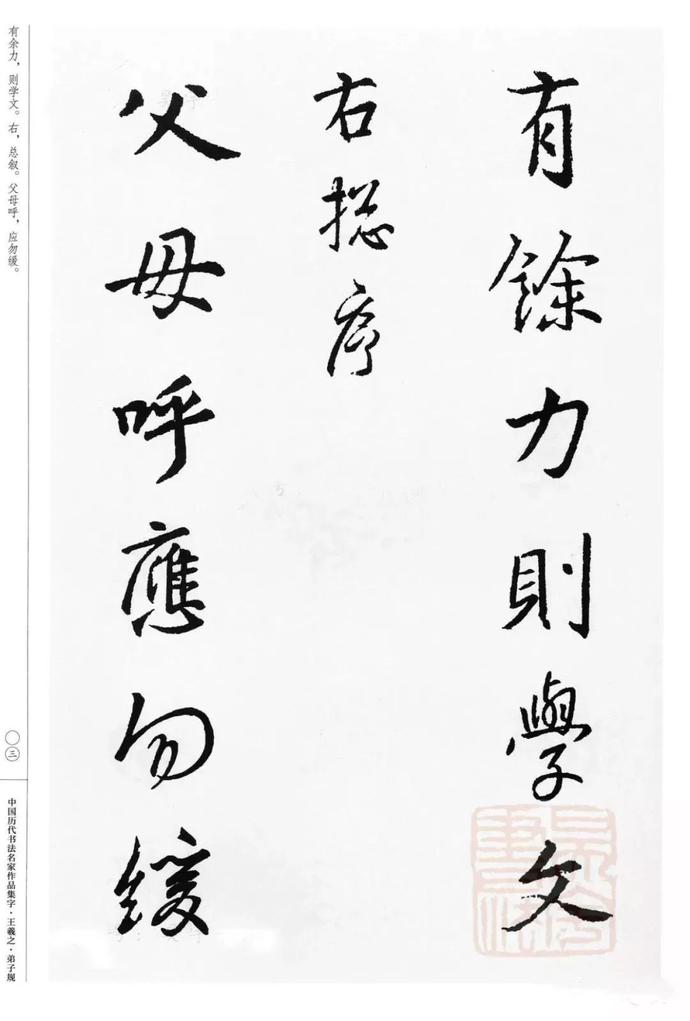 有餘力則學文
右摠序
父母呼應勿緩
有余力，则学文。右，总叙。父母呼，应勿缓。
〇三
中国历代书法名家作品集字·王羲之·弟子规